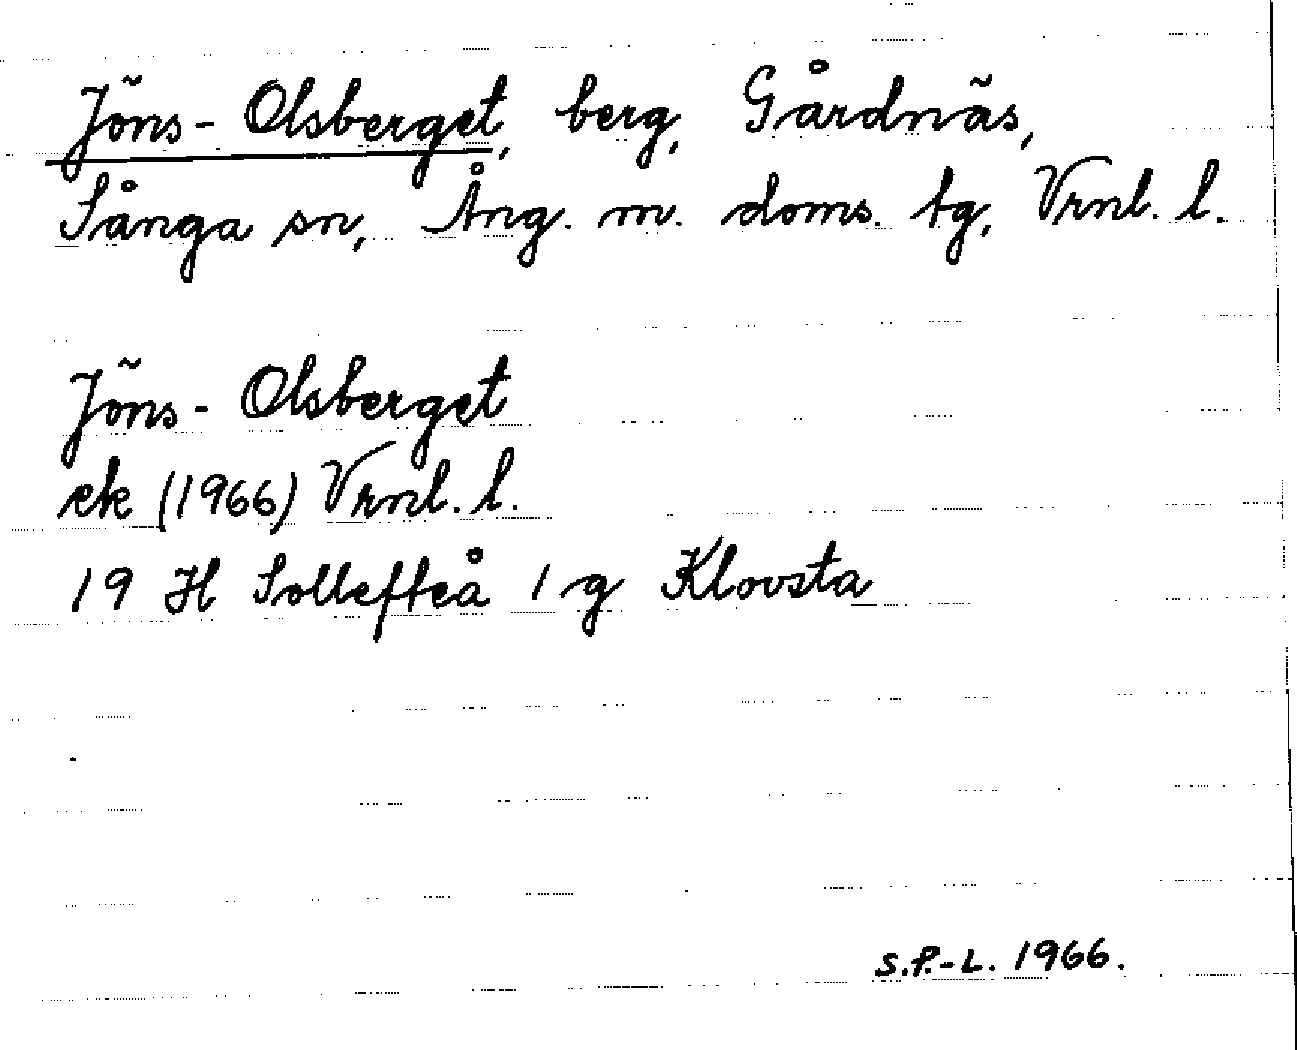 Jöns-Olsberget, berg, Gårdnäs,
Sånga sn, Ång. m. doms. tg, Vrnl. l.
Jöns-Olsberget
ek (1966) Vrnl. l.
19 H Sollefteå 1 g Klovsta
S.P.-L. 1966.